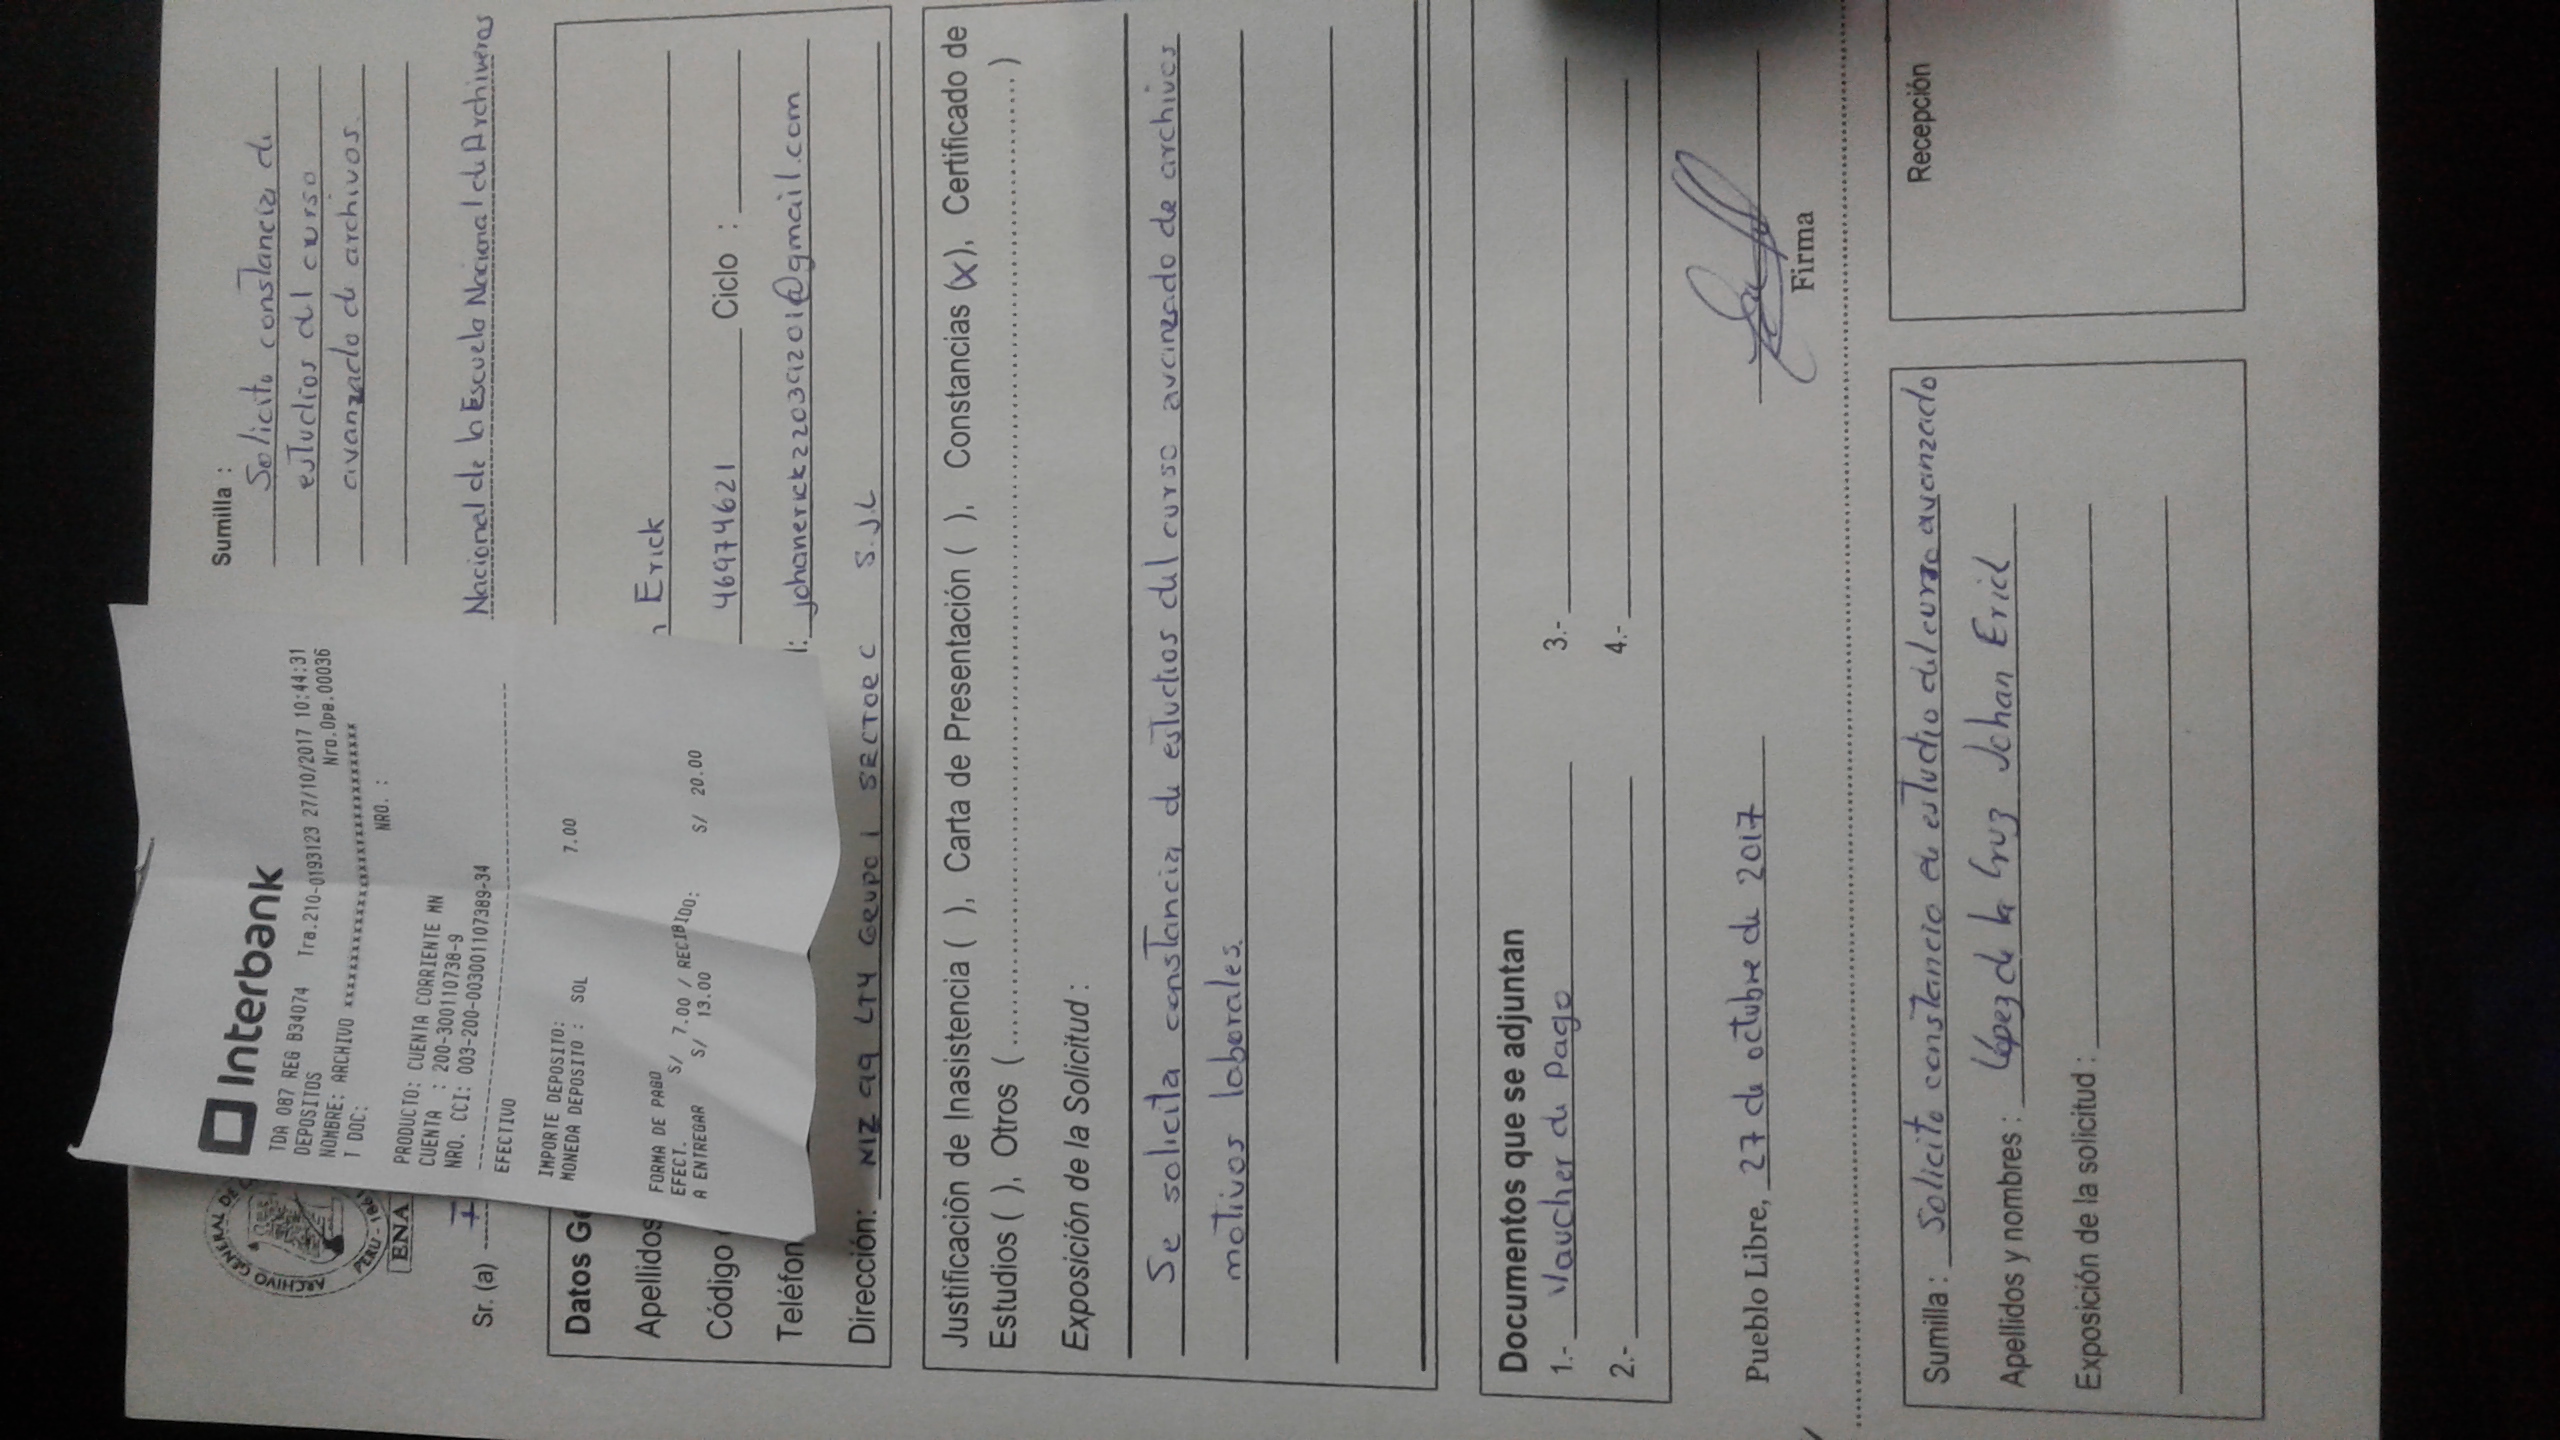 Interbank
TDA 087 REG B34074 Tra.210-0193123 27/10/2017 10:44:31
DEPOSITOS Nro.Ope.00036
NOMBRE: ARCHIVO xxxxxxxxxxxxxxxxxxxxxxxxxxxxxxx
T DOC: NRO. :
PRODUCTO: CUENTA CORRIENTE MN
CUENTA : 200-300110738-9
NRO. CCI: 003-200-003001107389-34
EFECTIVO
IMPORTE DEPOSITO: 7.00
MONEDA DEPOSITO : SOL
FORMA DE PAGO
EFECT. S/ 7.00 / RECIBIDO: S/ 20.00
A ENTREGAR S/ 13.00
ARCHIVO GENERAL DE
PERU - 1861
ENA
Sumilla :
Solicito constancia de
estudios del curso
avanzado de archivos.
Sr. (a) Nacional de la Escuela Nacional de Archiveros
Datos Ge
Apellidos Erick
Código 46974621 Ciclo :
Teléfon l: johanerick22039201@gmail.com
Dirección: MZ 99 LT4 Grupo 1 SECTOR C S.J.L
Justificación de Inasistencia ( ), Carta de Presentación ( ), Constancias (x), Certificado de
Estudios ( ), Otros ( )
Exposición de la Solicitud :
Se solicita constancia de estudios del curso avanzado de archivos
motivos laborales.
Documentos que se adjuntan
1.- Vaucher de Pago 3.-
2.- 4.-
Pueblo Libre, 27 de octubre de 2017
Firma
Sumilla : Solicito constancia de estudio del curso avanzado
Apellidos y nombres : López de la Cruz Johan Erick
Exposición de la solicitud :
Recepción